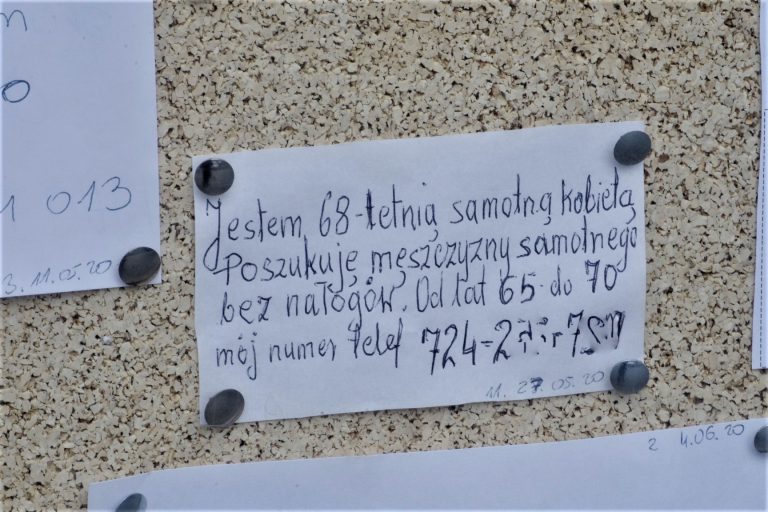 n
0
1 013
3. 11.05.20
Jestem 68-letnią samotną kobietą
Poszukuję męszczyzny samotnego
bez nałogów. Od lat 65 do 70
mój numer telef 724-2
11. 27.05.20
2 4.06.20